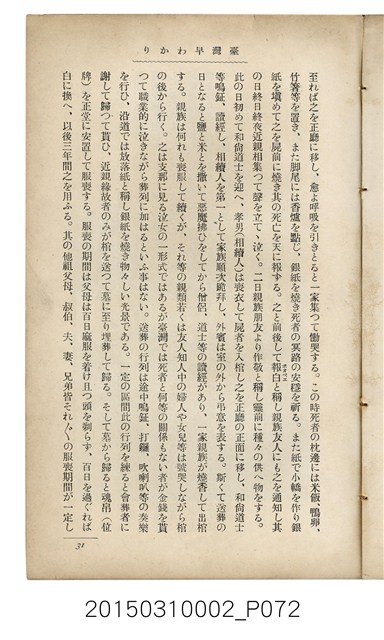 臺灣早わかり
至れば之を正廳に移し、愈よ呼吸を引きとると一家集つて慟哭する。この時死者の枕邊には米飯、鴨卵、
竹箸等を置き、また脚尾には香爐を點じ、銀紙を燒き死者の冥路の安穩を祈る。また紙で小轎を作り銀
紙を塡めて之を屍前に燒き其の死亡を天に報する。之と前後して報白と稱し親族友人にも之を通知し其
の日終日終夜近親相集つて聲を立て丶泣く。二日親族朋友より作敬と稱し靈前に種々の供へ物をする。
此の日初めて和尙道士を迎へ、孝男(相續人)は喪衣して屍者を入棺し之を正廳の正面に移し、和尙道士
等鳴鉦、讀經し、相續人を第一として家族順次跪拜し、外賓は室の外から弔意を表する。斯くて送葬の
日となると鹽と米とを撒いて惡魔拂ひをしてから僧侶、道士等の讀經があり、一家親族が燒香して出棺
する。親族は何れも喪服して續くが、それ等の親類若くは友人知人中の婦人や女兒等は號哭しながら棺
の後から行く。之は支那に見る泣女の一形式ではあるが臺灣では死者と何等の關係もない者が金錢を貰
つて職業的に泣きながら葬列に加はるといふ事はない。送葬の行列は途中鳴鉦、打鑼、吹喇叭等の奏樂
を行ひ、沿道では放落紙と稱し銀紙を燒き物々しい光景である。一定の區間此の行列を練ると會葬者に
謝して歸つて貰ひ、近親緣故者のみが棺を送つて墓に至り埋葬して歸る。そして墓から歸ると魂帛(位
牌)を正堂に安置して服喪する。服喪の期間は父母は百日麻服を着け且つ頭を剃らす、百日を過ぐれば
白に換へ、以後三年間之を用ふる。其の他祖父母、叔伯、夫、妻、兄弟皆それ〲の服喪期間が一定し
31
20150310002_P072